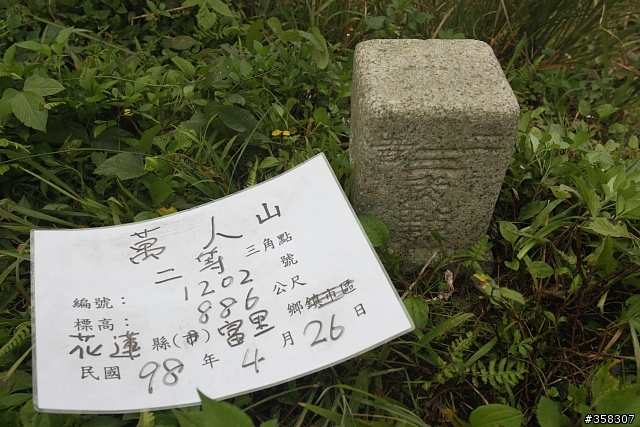 萬人山
二等三角點
編號：1202號
標高：886公尺
花蓮縣(市)富里鄉鎮市區
民國98年4月26日
#358307